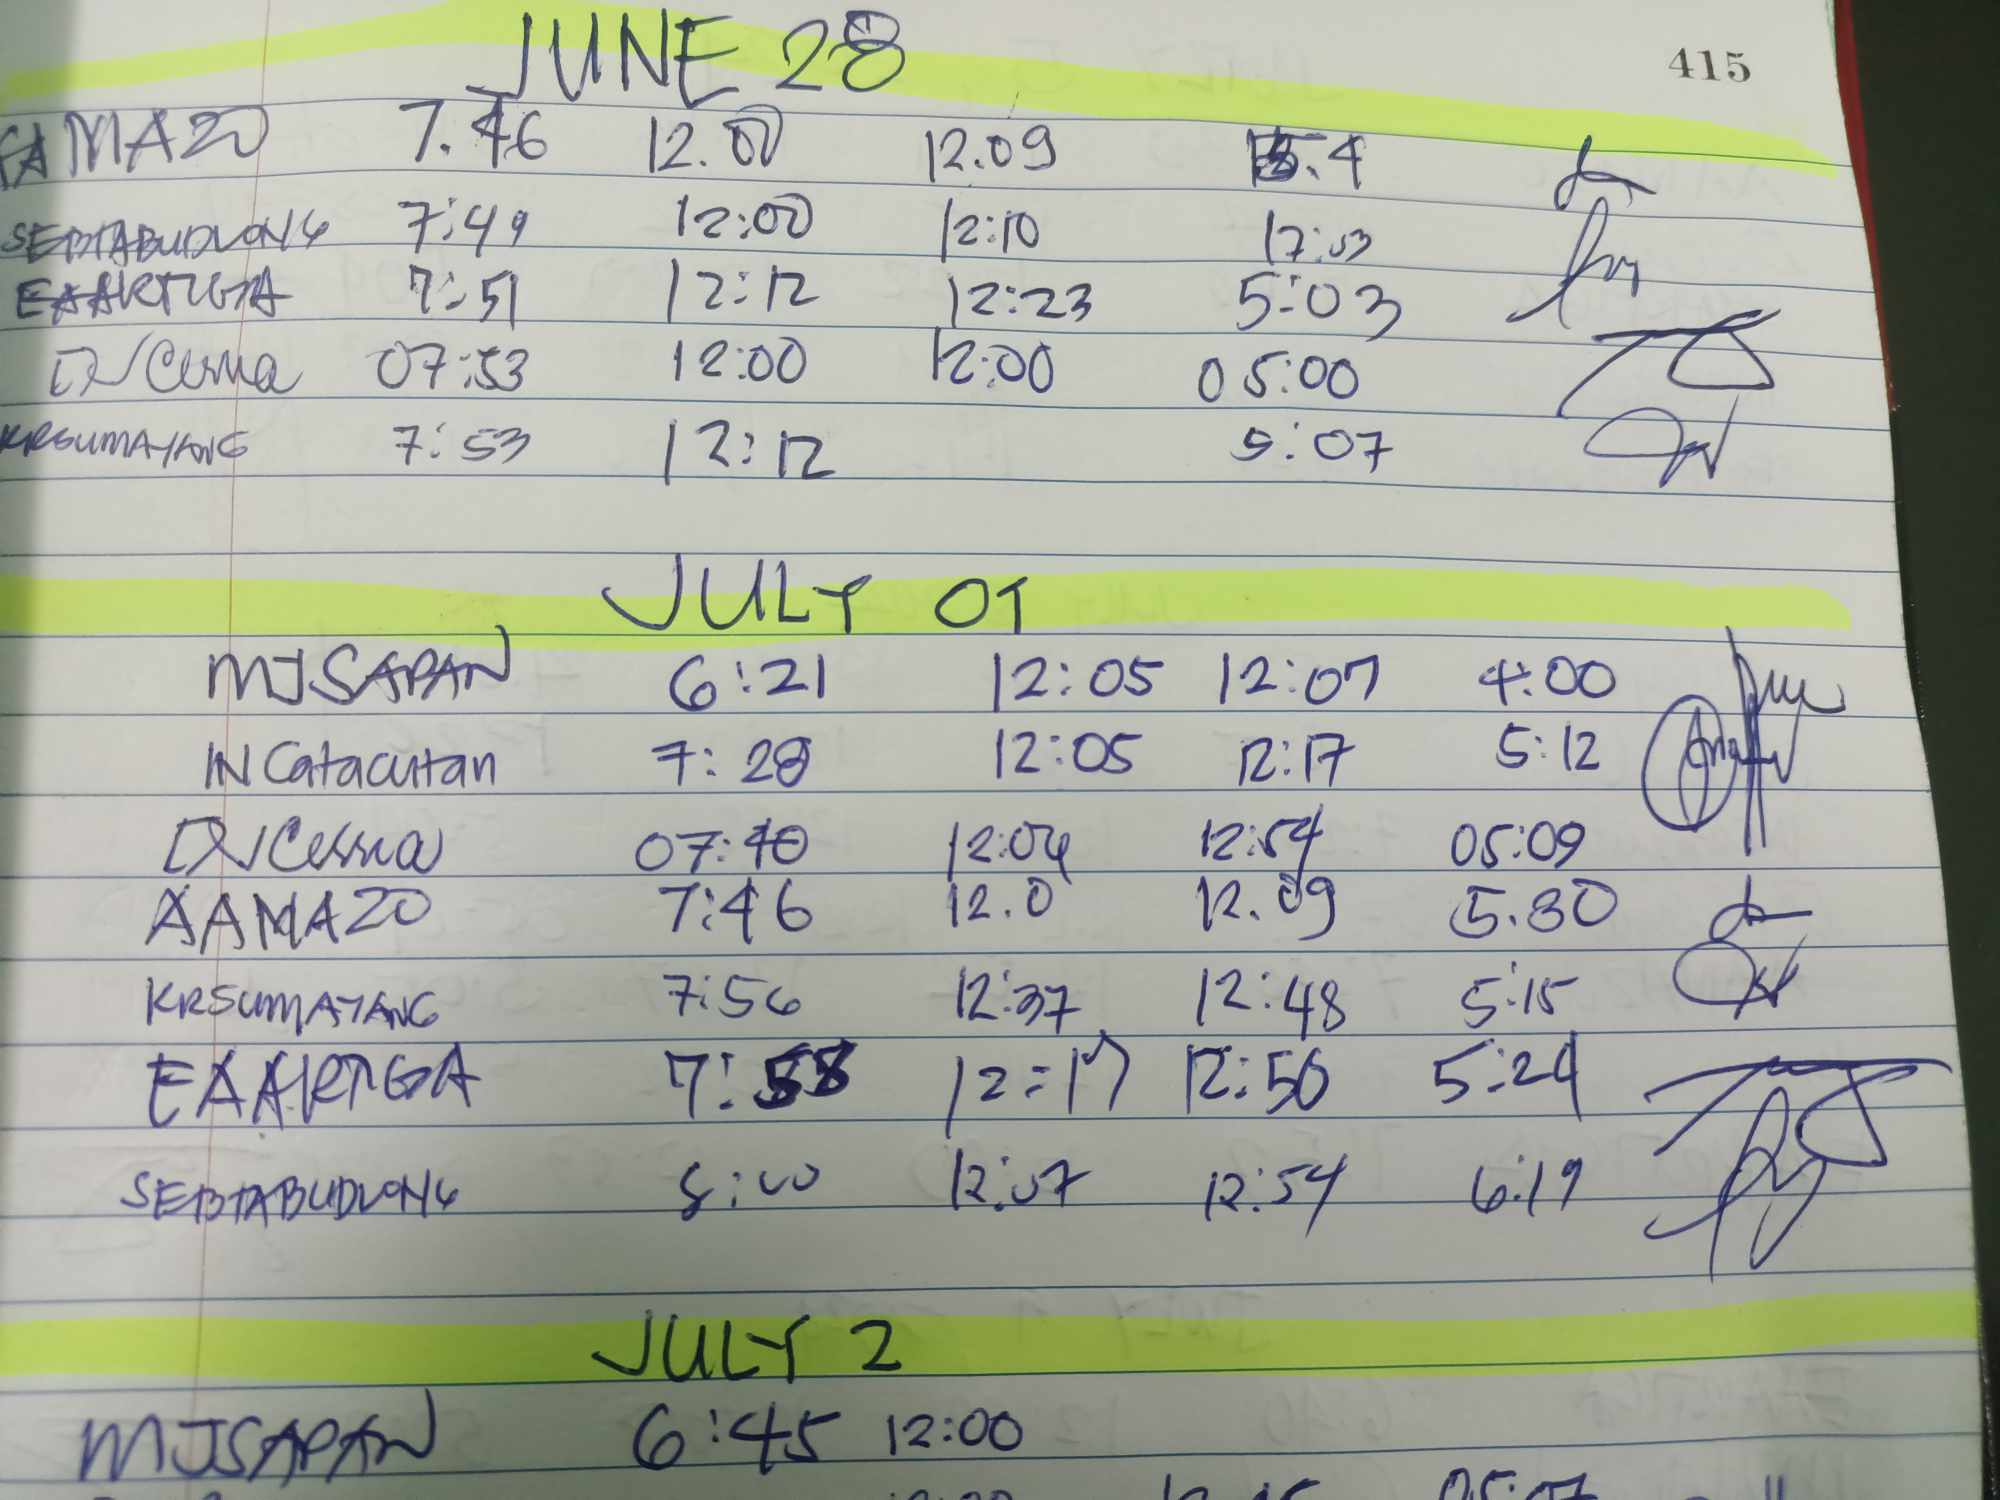 415
JUNE 28
AAMAZO 7.46 12.00 12.09 5.4
SEBTABUDLONG 7:49 12:00 12:10 17:53
EAARTIGA 7:51 12:12 12:23 5:03
07:53 12:00 12:00 05:00
KRSUMAYANG 7:53 12:12 5:07
JULY 01
MJSAPAN 6:21 12:05 12:07 4:00
INCatacutan 7:28 12:05 12:17 5:12
07:40 12:04 12:54 05:09
AAMAZO 7:46 12.0 12.09 5.30
KRSUMAYANG 7:56 12:37 12:48 5:15
EAARTIGA 7:58 12:17 12:50 5:24
SEBTABUDLONG 8:00 12:07 12:54 6:19
JULY 2
MJSAPAN 6:45 12:00
05:07